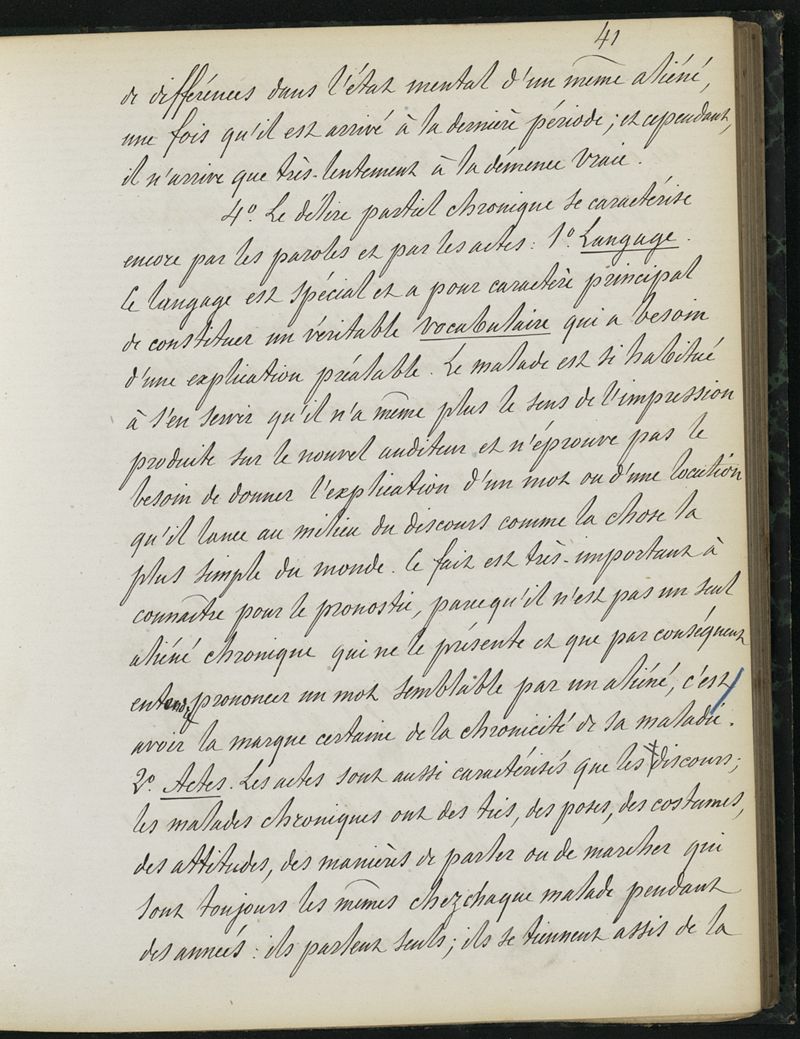 41
de différences dans l'état mental d'un même aliéné,
une fois qu'il est arrivé à la dernière période ; et cependant,
il n'arrive que très-lentement à la démence vraie.
4°. Le délire partiel chronique se caractérise
encore par les paroles et par les actes : 1°. Langage.
Ce langage est spécial et a pour caractère principal
de constituer un véritable vocabulaire qui a besoin
d'une explication préalable. Le malade est si habitué
à s'en servir qu'il n'a même plus le sens de l'impression
produite sur le nouvel auditeur et n'éprouve pas le
besoin de donner l'explication d'un mot ou d'une locution
qu'il lance au milieu du discours comme la chose la
plus simple du monde. Ce fait est très-important à
connaître pour le pronostic, parcequ'il n'est pas un seul
aliéné chronique qui ne le présente et que par conséquent
entendre prononcer un mot semblable par un aliéné, c'est
avoir la marque certaine de la chronicité de sa maladie.
2°. Actes. Les actes sont aussi caractérisés que les discours ;
les malades chroniques ont des tics, des poses, des costumes,
des attitudes, des manières de parler ou de marcher qui
sont toujours les mêmes chez chaque malade pendant
des années : ils parlent seuls ; ils se tiennent assis de la